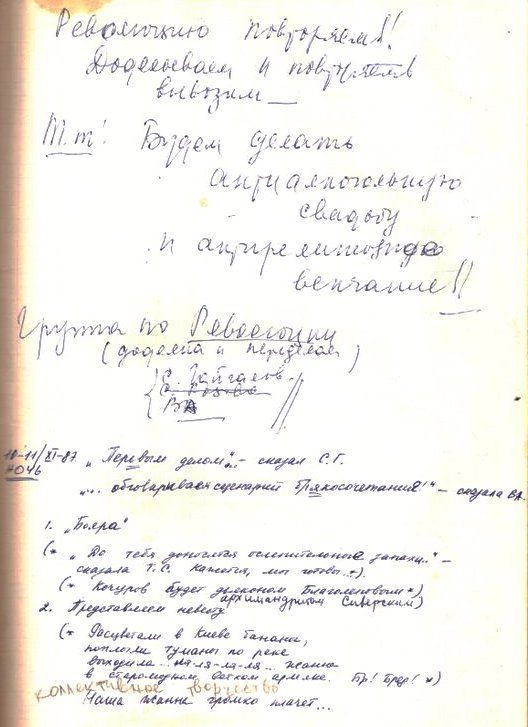 Революцию повторяем!!
Доделываем и повторяем
вывозим —
Т.т! Будем делать
антиалкогольную
свадьбу
и антирелигиозное
венчание!!
Группа по Революции
(доделка и переделка)
С. Гайгалов
ВА
10-11/XI-87 „Первым делом".. – сказал С.Г.
НОЧЬ
„... обговариваем сценарий бракосочетания!" – сказала ВА.
1. „Бояра"
(* „До тебя доносятся ослепительные запахи.." –
сказала Т.С. Кажется, мы готовы...*)
(* Кочуров будет дьяконом Благолеповым *)
архимандритом Сиверским)
2. Представляем невесту
(* Расцветали в Киеве бананы,
поплыли туманы по реке
Выходила... ля-ля-ля-ля... Жанна
в старомодном ватном армяке. Бр! Брр! *)
Наша Жанна громко плачет...
коллективное творчество